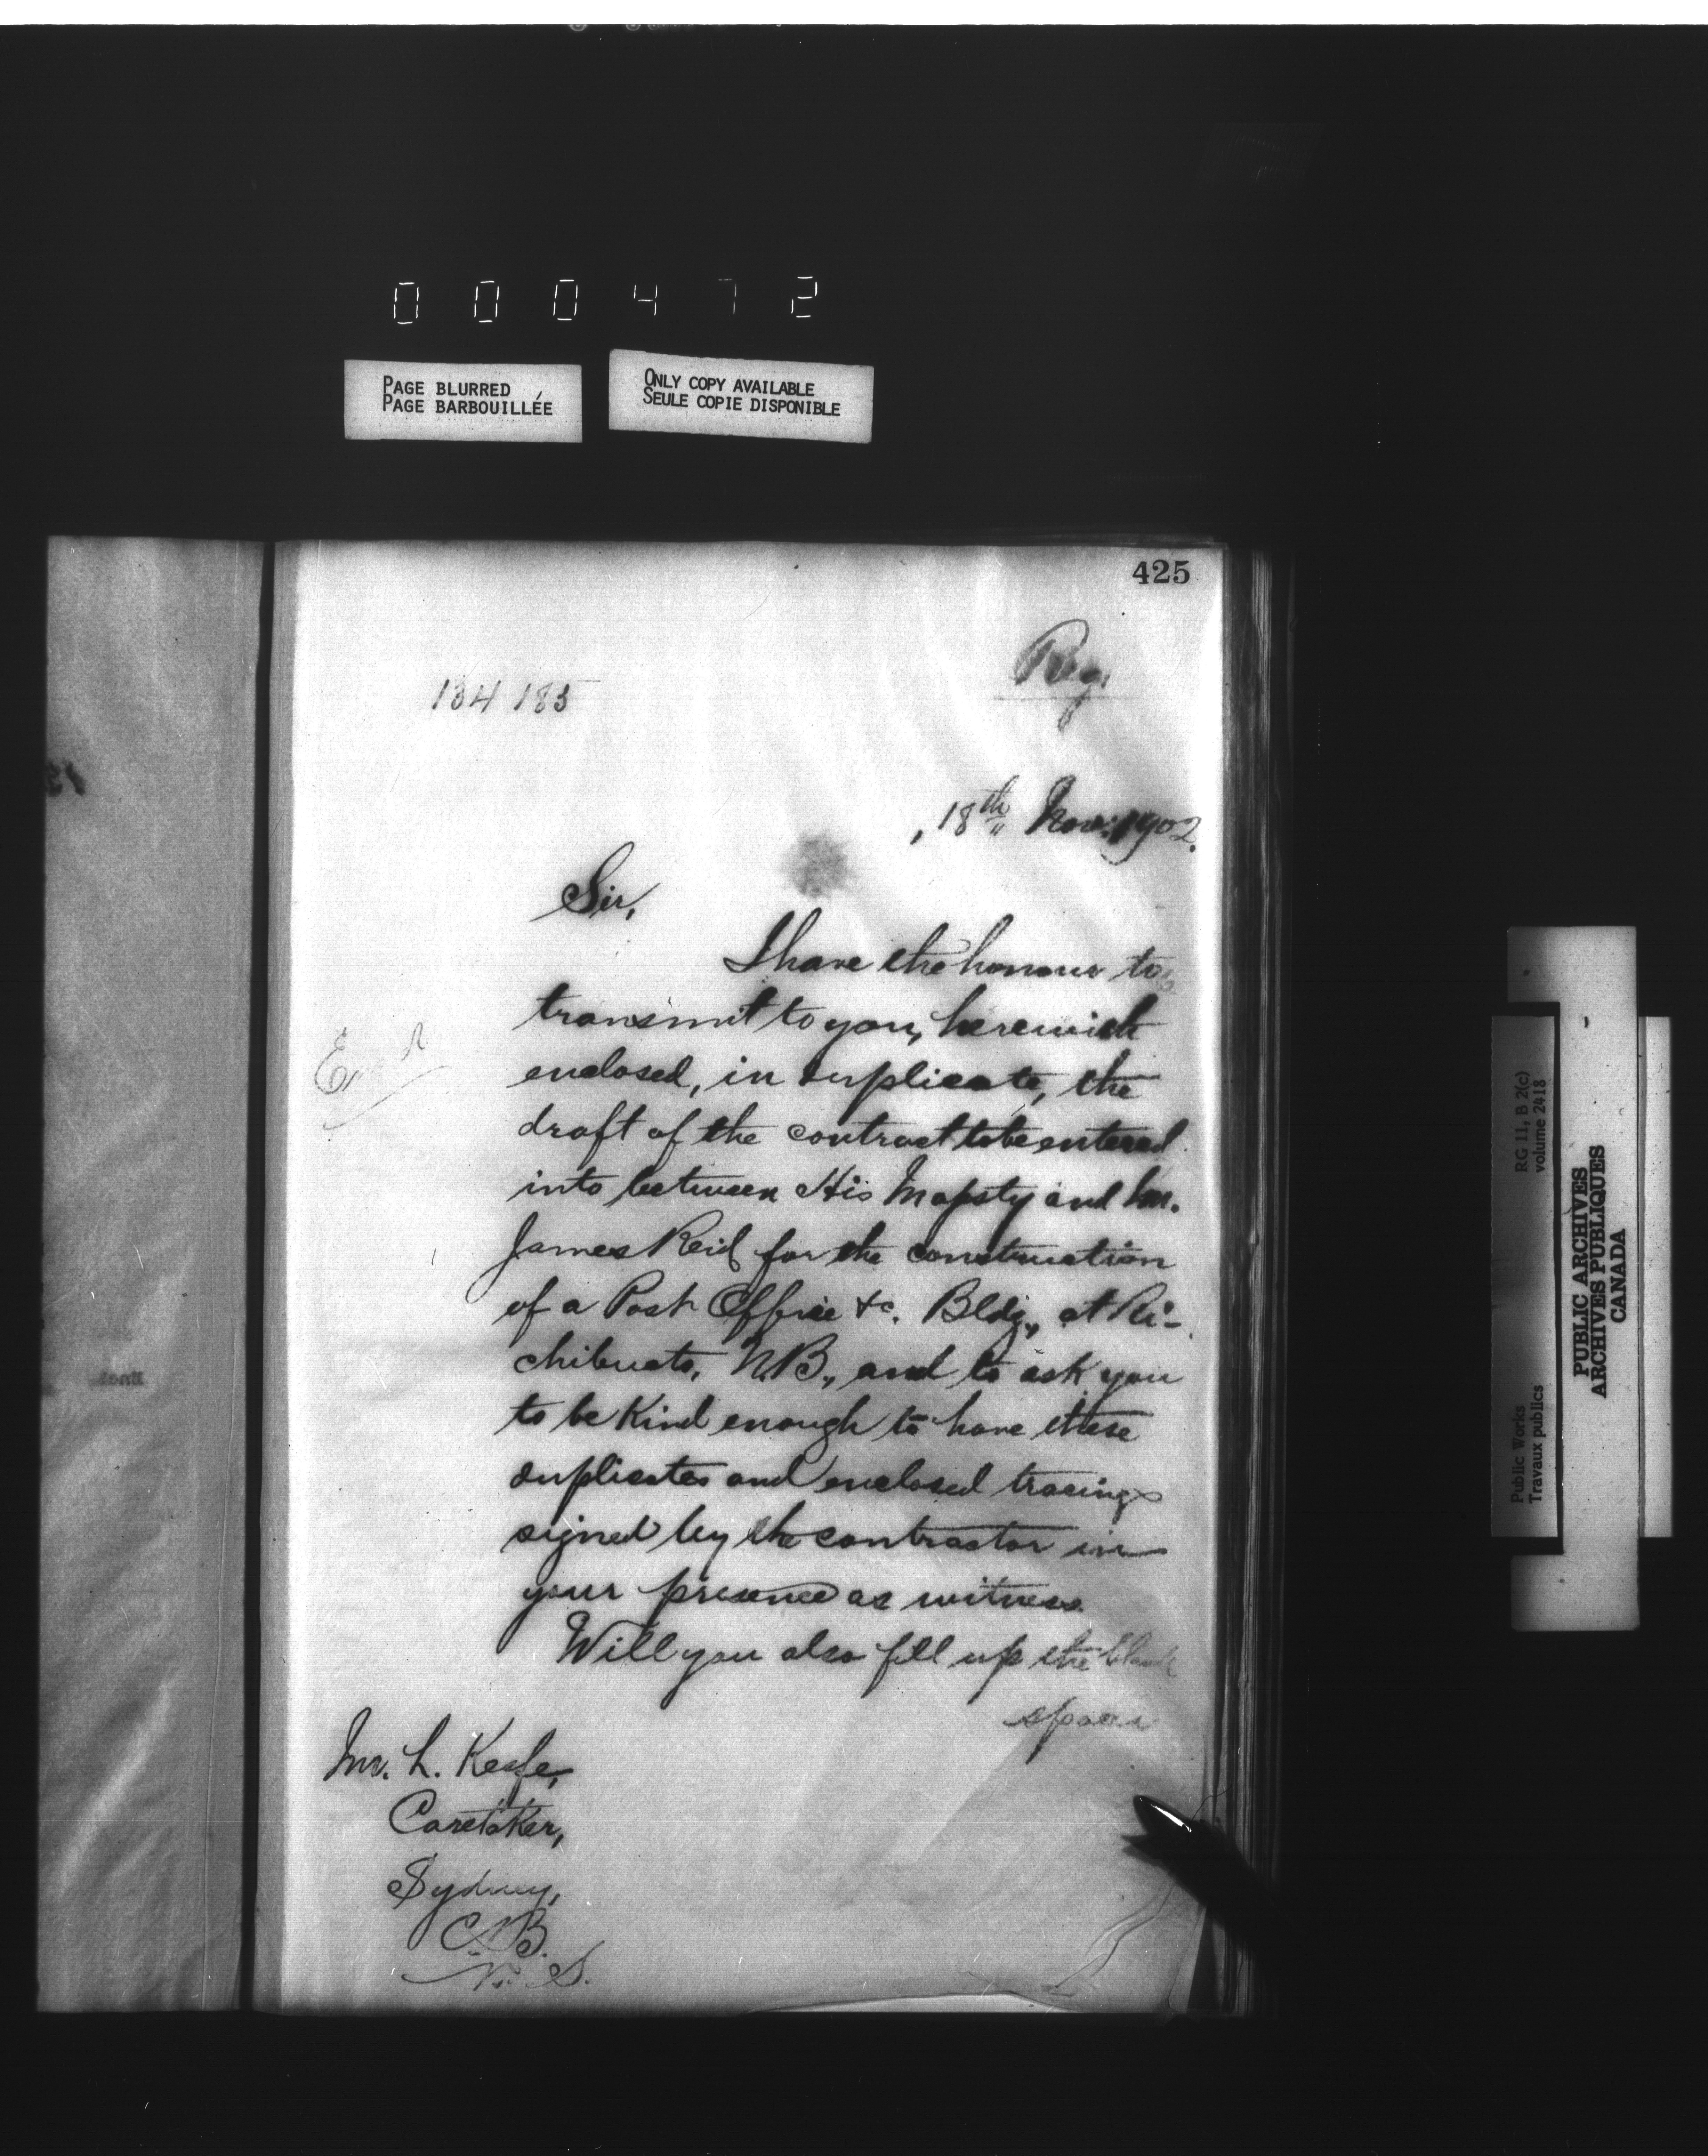 000472
PAGE BLURRED
PAGE BARBOUILLÉE
ONLY COPY AVAILABLE
SEULE COPIE DISPONIBLE
425
Reg.
134 185
18th Nov. 1902.
Sir,
I have the honour to
transmit to you, herewith
enclosed, in duplicate, the
draft of the contract to be entered
into between His Majesty and Mr.
James Reid for the construction
of a Post Office &c. Bldg., at Ri-
chibucto, N.B., and to ask you
to be kind enough to have these
duplicates and enclosed tracings
signed by the contractor in
your presence as witness.
Will you also fill up the blank
spaces
Mr. L. Keefe,
Caretaker,
Sydney,
C.B.
N.S.
Public Works
Travaux publics
RG 11, B 2(c)
volume 2418
PUBLIC ARCHIVES
ARCHIVES PUBLIQUES
CANADA